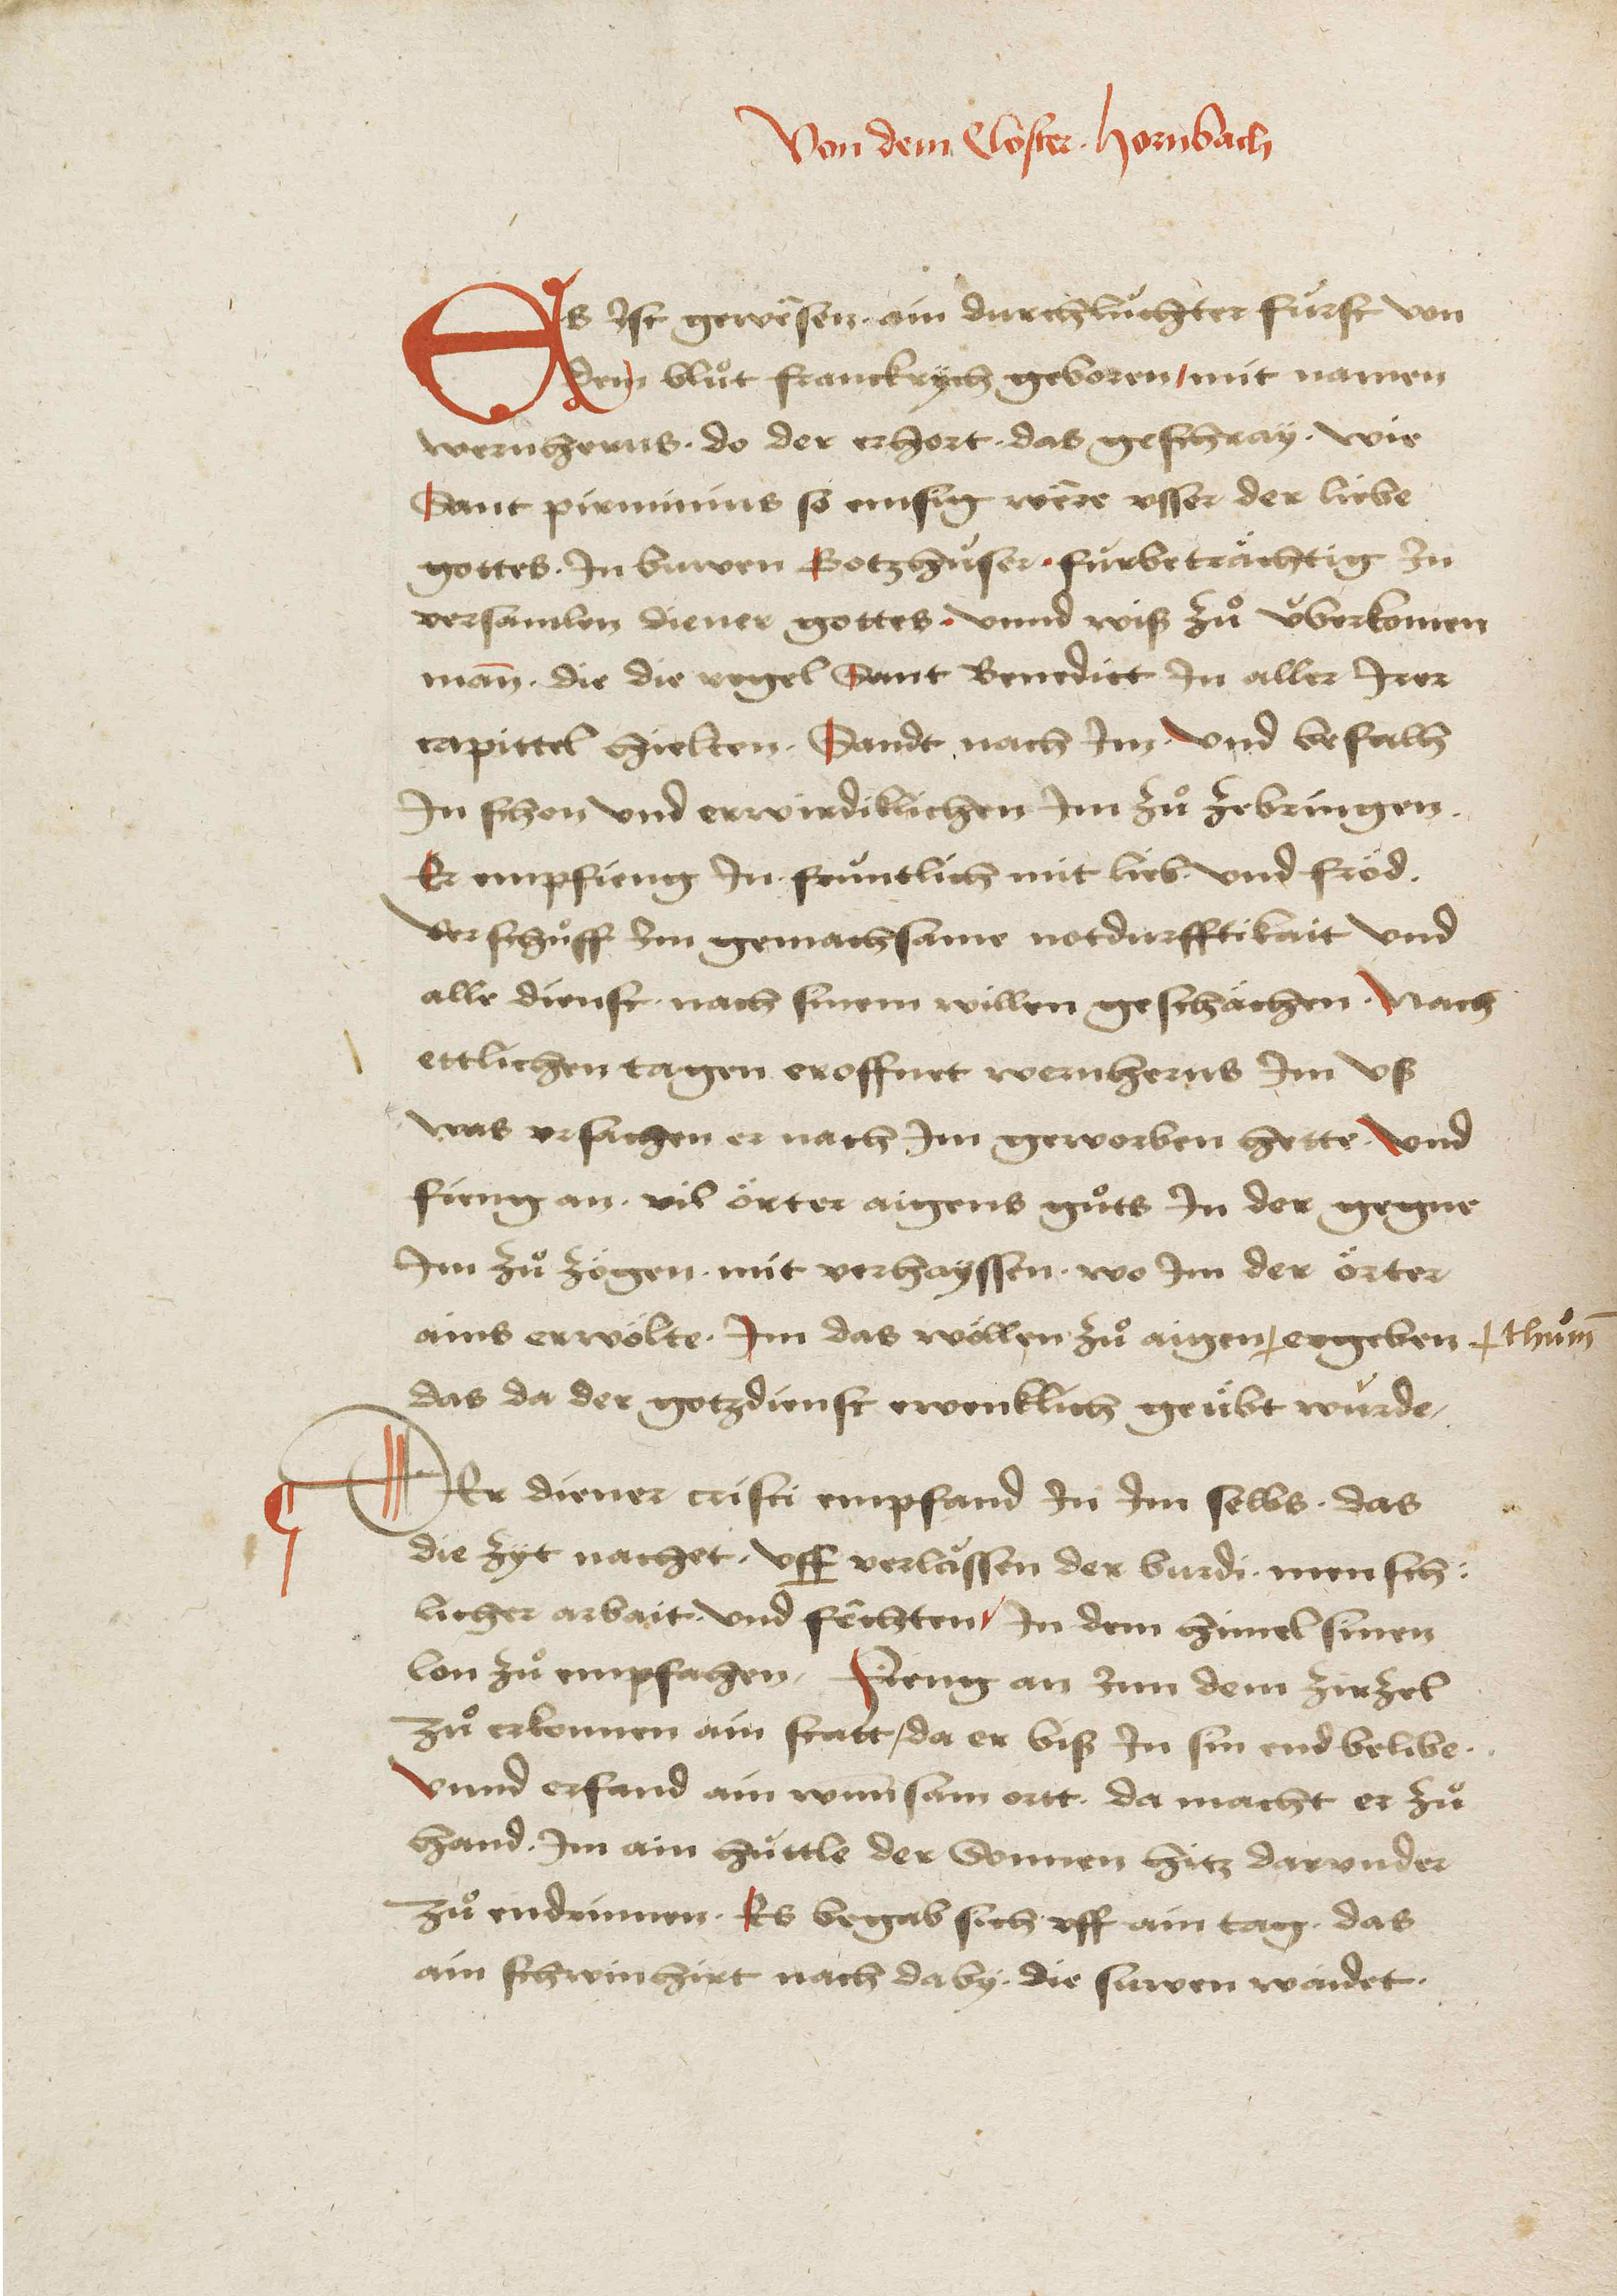 Von dem Closter. Hornbach
Es Ist gewêsen. ain durchlüchter fürst von
dem blůt franckrÿch geboren / mit namen
wernherus. do der erhort. das geschray. wie
Sant pirminius so emsig wêre vsser der liebe
gottes. In buwen Gotzhüser. fürbeträchtig In
versamlen diener gottes. vnnd wiß zů v̈berkomen
man̄. die die regel Sant Benedict In aller Irer
capittel hielten. Sandt nach Im. Vnd befalh
In schon vnd erwirdiklichen Im zů zebringen.
Er empfieng In früntlich mit lieb vnd fröd.
Verschůff Im gemachsame notdurfftikait vnd
alle dienst. nach sinem willen geschächen. Nach
ettlichen tagen eroffnet wernherus Im vß
was vrsachen er nach Im geworben hette. Vnd
fieng an. vil örter aigens gůts In der gegne
Im zů zögen. mit verhayssen. wo Im der örter
ains erwölte. Im das wöllen zů aigen + ergeben + thům̄
das da der gotzdienst ewenklich geübt würde /
¶ Der diener cristi empfand In Im selbs. das
die zyt nachet. vff verlässen der burdi. mensch:
licher arbait. vnd fêchten / In dem himel sinen
lon zů empfachen. Fieng an Inn dem zirzel
zů erkonnen ain statt / da er biß In sin end belibe.
Vnnd erfand ain wunsam ortt. da macht er zů
hand. Im ain hüttle der Sonnen hitz darvnder
zů endrinnen. Es begab sich vff ain tag. das
ain schwinhirt nach daby. die suwen waidet.